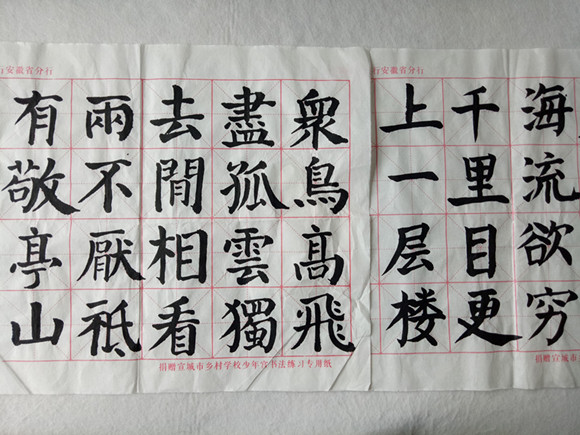 行安徽省分行
海流欲穷
千里目更
上一层楼
捐赠宣城市
行安徽省分行
衆鳥髙飛
盡孤雲獨
去閒相看
兩不厭祗
有敬亭山
捐赠宣城市乡村学校少年宫书法练习专用纸